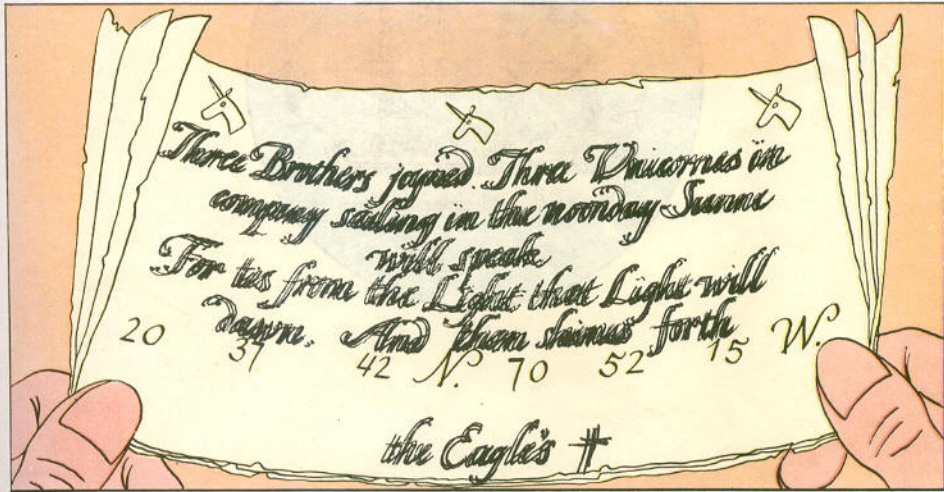 Three Brothers joyned. Three Unicornes in
company sailing in the noonday Sunne
will speake
For tis from the Light that Light will
dawn. And then shines forth
20 37 42 N. 70 52 15 W.
the Eagle's ‡